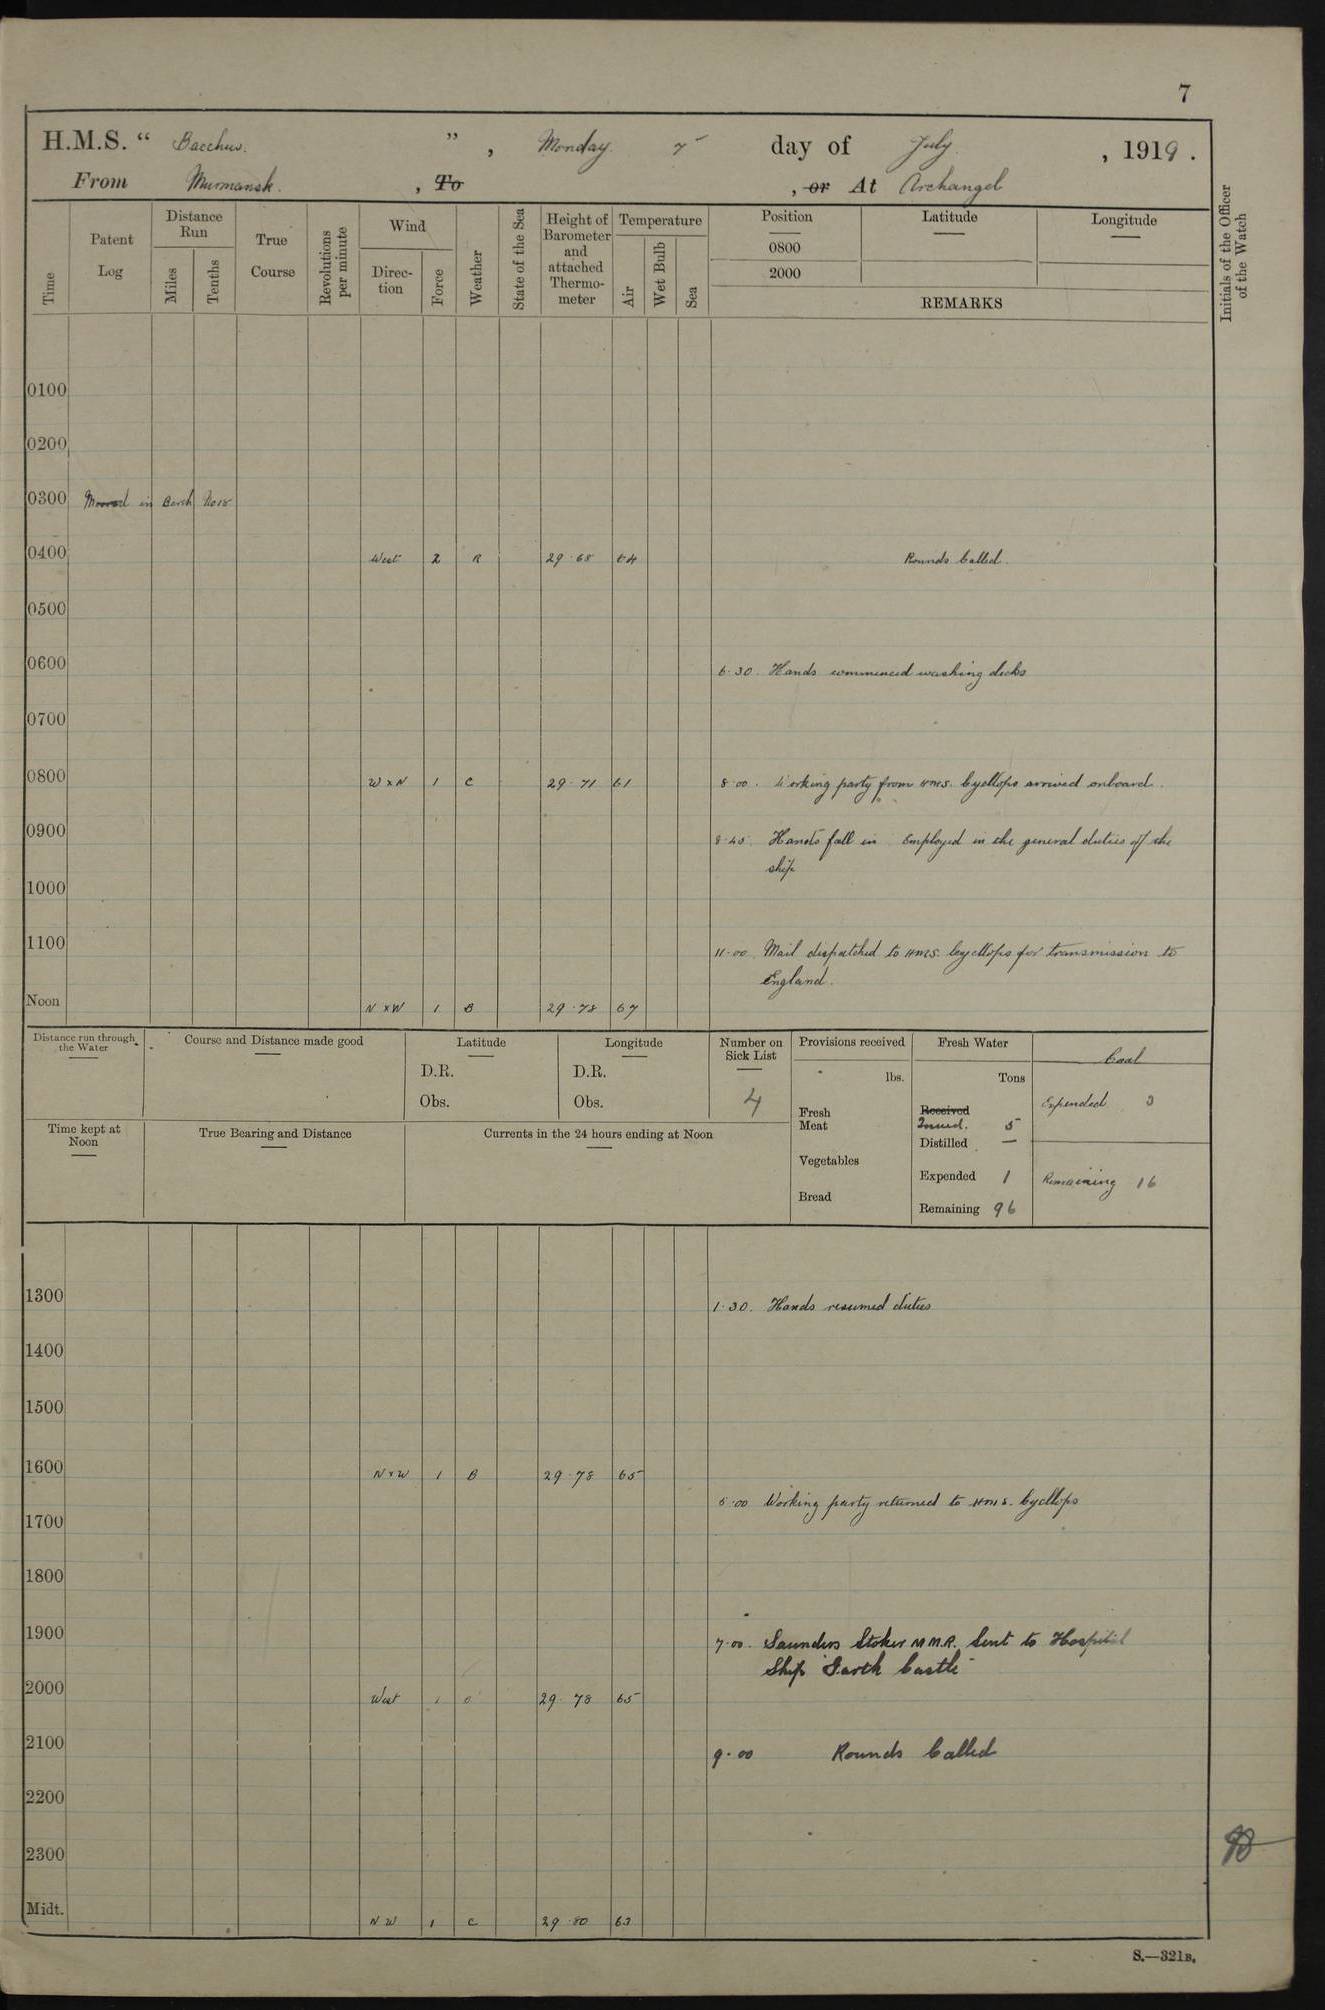 7
H.M.S. “ Bacchus. ” , Monday. 7 day of July. , 1919 .
From Murmansk. , To , or At Archangel
Time
Patent Log
Distance Run
Miles
Tenths
True Course
Revolutions per minute
Wind
Direc-tion
Force
Weather
State of the Sea
Height of Barometer and attached Thermo-meter
Temperature
Air
Wet Bulb
Sea
Position
0800
2000
Latitude
Longitude
REMARKS
Initials of the Officer of the Watch
0100
0200
0300 Moored in Berth No 18
0400 West 2 R 29.68 64 Rounds Called.
0500
0600
6.30. Hands commenced washing decks
0700
0800 W x N 1 C 29.71 61 8.00. Working party from HMS. Cycllops arrived onboard.
0900 8.45. Hands fall in. Employed in the general duties of the
ship
1000
1100 11.00. Mail dispatched to HMS. Cycllops for transmission to
England.
Noon N x W 1 B 29.78 67
Distance run through the Water
Course and Distance made good
Latitude
D.R.
Obs.
Longitude
D.R.
Obs.
Number on Sick List
4
Provisions received
lbs.
Fresh Meat
Vegetables
Bread
Fresh Water
Tons
Received
Issued. 5
Distilled —
Expended 1
Remaining 96
Coal
Expended 3
Remaining 16
Time kept at Noon
True Bearing and Distance
Currents in the 24 hours ending at Noon
1300 1.30. Hands resumed duties
1400
1500
1600 N x W 1 B 29.78 65
5.00 Working party returned to HMS. Cycllops
1700
1800
1900 7.00. Saunders Stoker M.M.R. Sent to Hospital
Ship Garth Castle
2000 West 1 29.78 65
2100 9.00 Rounds Called
2200
2300
Midt. N W 1 C 29.80 63
S.—321B.